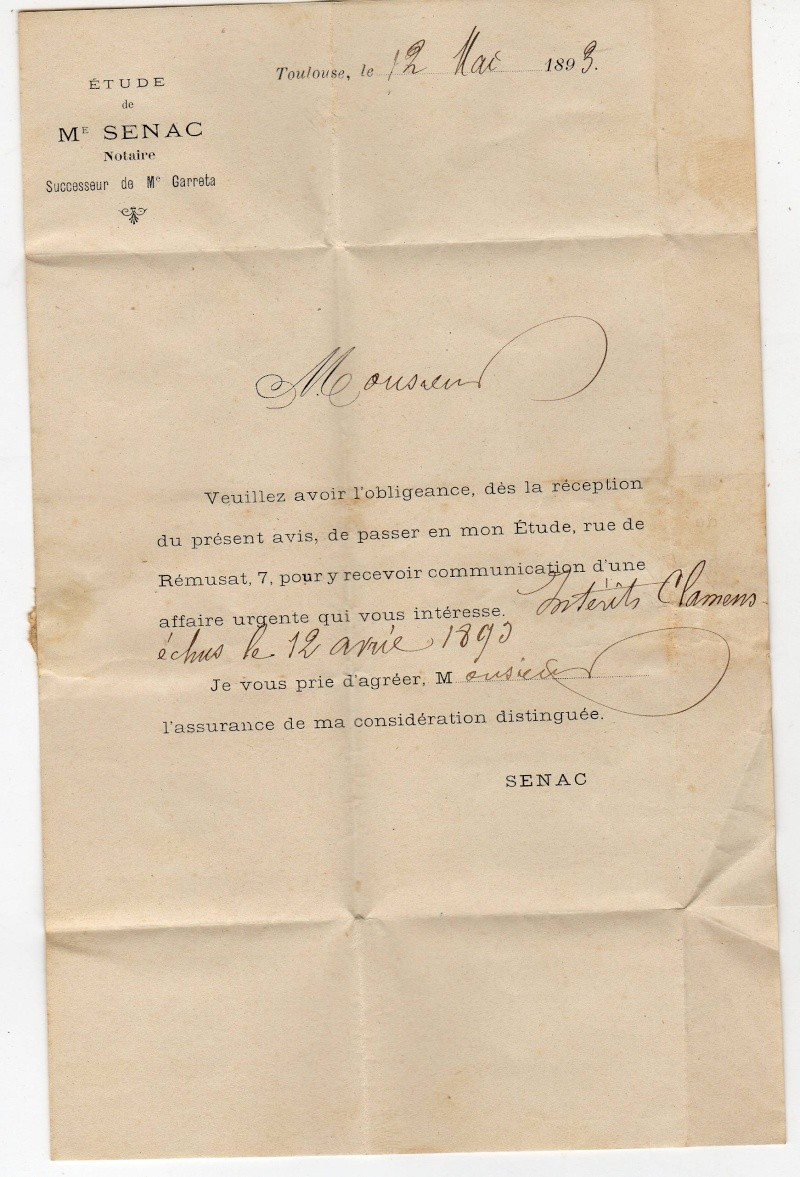 Toulouse, le 12 Mai 1893.
ÉTUDE
de
ME SENAC
Notaire
Successeur de Me Garreta
Monsieur
Veuillez avoir l'obligeance, dès la réception
du présent avis, de passer en mon Étude, rue de
Rémusat, 7, pour y recevoir communication d'une
affaire urgente qui vous intéresse. Intérêts Clamens
échus le 12 avril 1893
Je vous prie d'agréer, Monsieur
l'assurance de ma considération distinguée.
SENAC